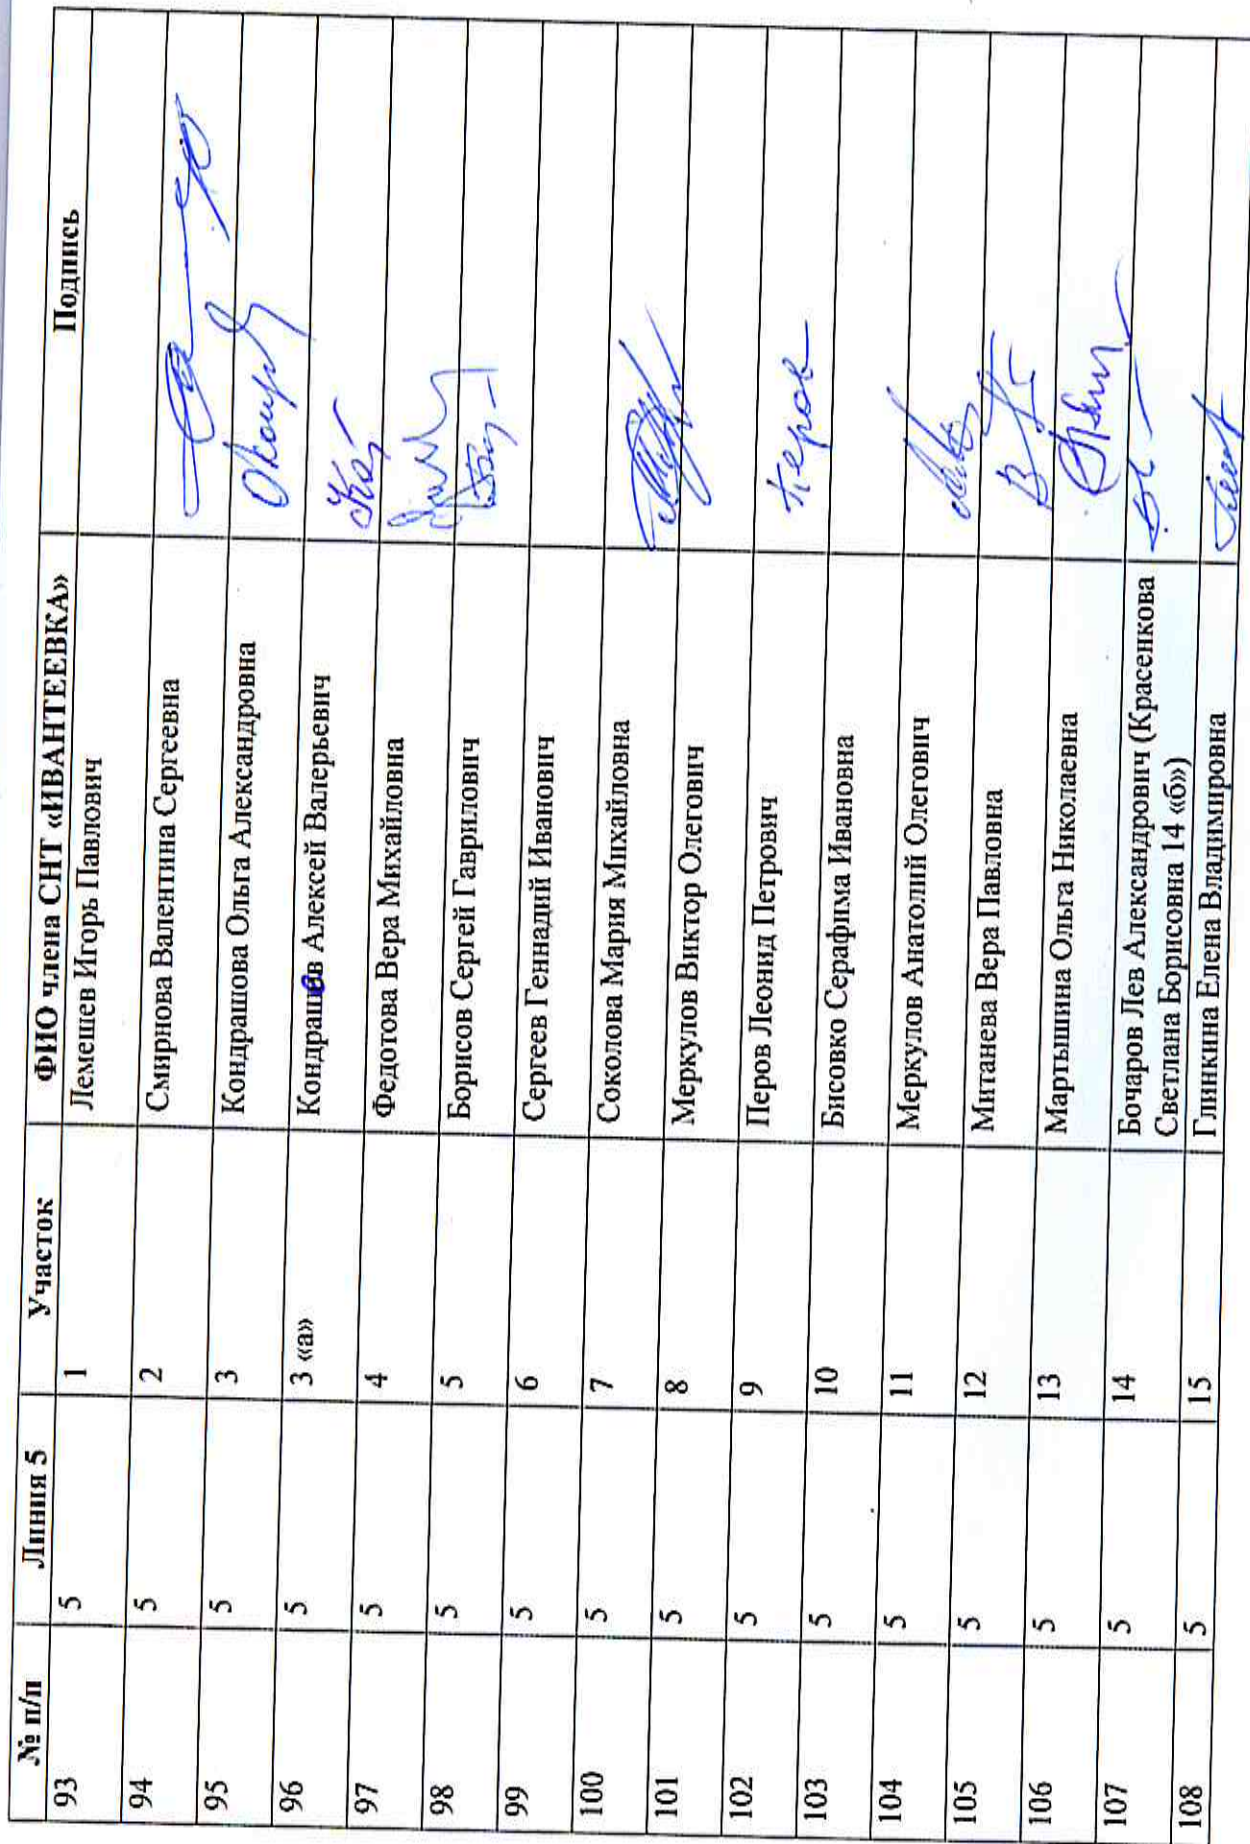 № п/п Линия 5 Участок ФИО члена СНТ «ИВАНТЕЕВКА» Подпись
93 5 1 Лемешев Игорь Павлович
94 5 2 Смирнова Валентина Сергеевна
95 5 3 Кондрашова Ольга Александровна
96 5 3 «а» Кондрашев Алексей Валерьевич
97 5 4 Федотова Вера Михайловна
98 5 5 Борисов Сергей Гаврилович
99 5 6 Сергеев Геннадий Иванович
100 5 7 Соколова Мария Михайловна
101 5 8 Меркулов Виктор Олегович
102 5 9 Перов Леонид Петрович Перов
103 5 10 Бисовко Серафима Ивановна
104 5 11 Меркулов Анатолий Олегович
105 5 12 Митанева Вера Павловна
106 5 13 Мартышина Ольга Николаевна
107 5 14 Бочаров Лев Александрович (Красенкова
Светлана Борисовна 14 «б»)
108 5 15 Глинкина Елена Владимировна